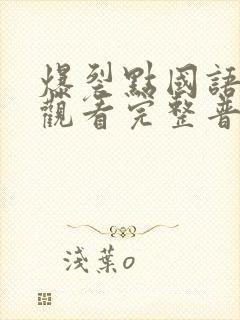 爆裂點國語
觀看完整普
淺葉o